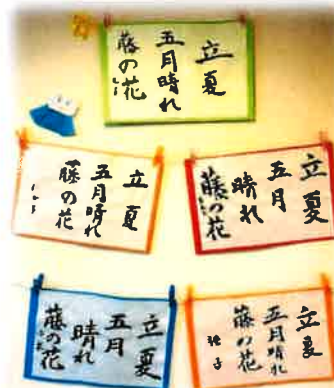 立夏
五月晴れ
藤の花
立夏
五月晴れ
藤の花
立夏
五月
晴れ
藤の花
立夏
五月
晴れ
藤の花
立夏
五月晴れ
藤の花